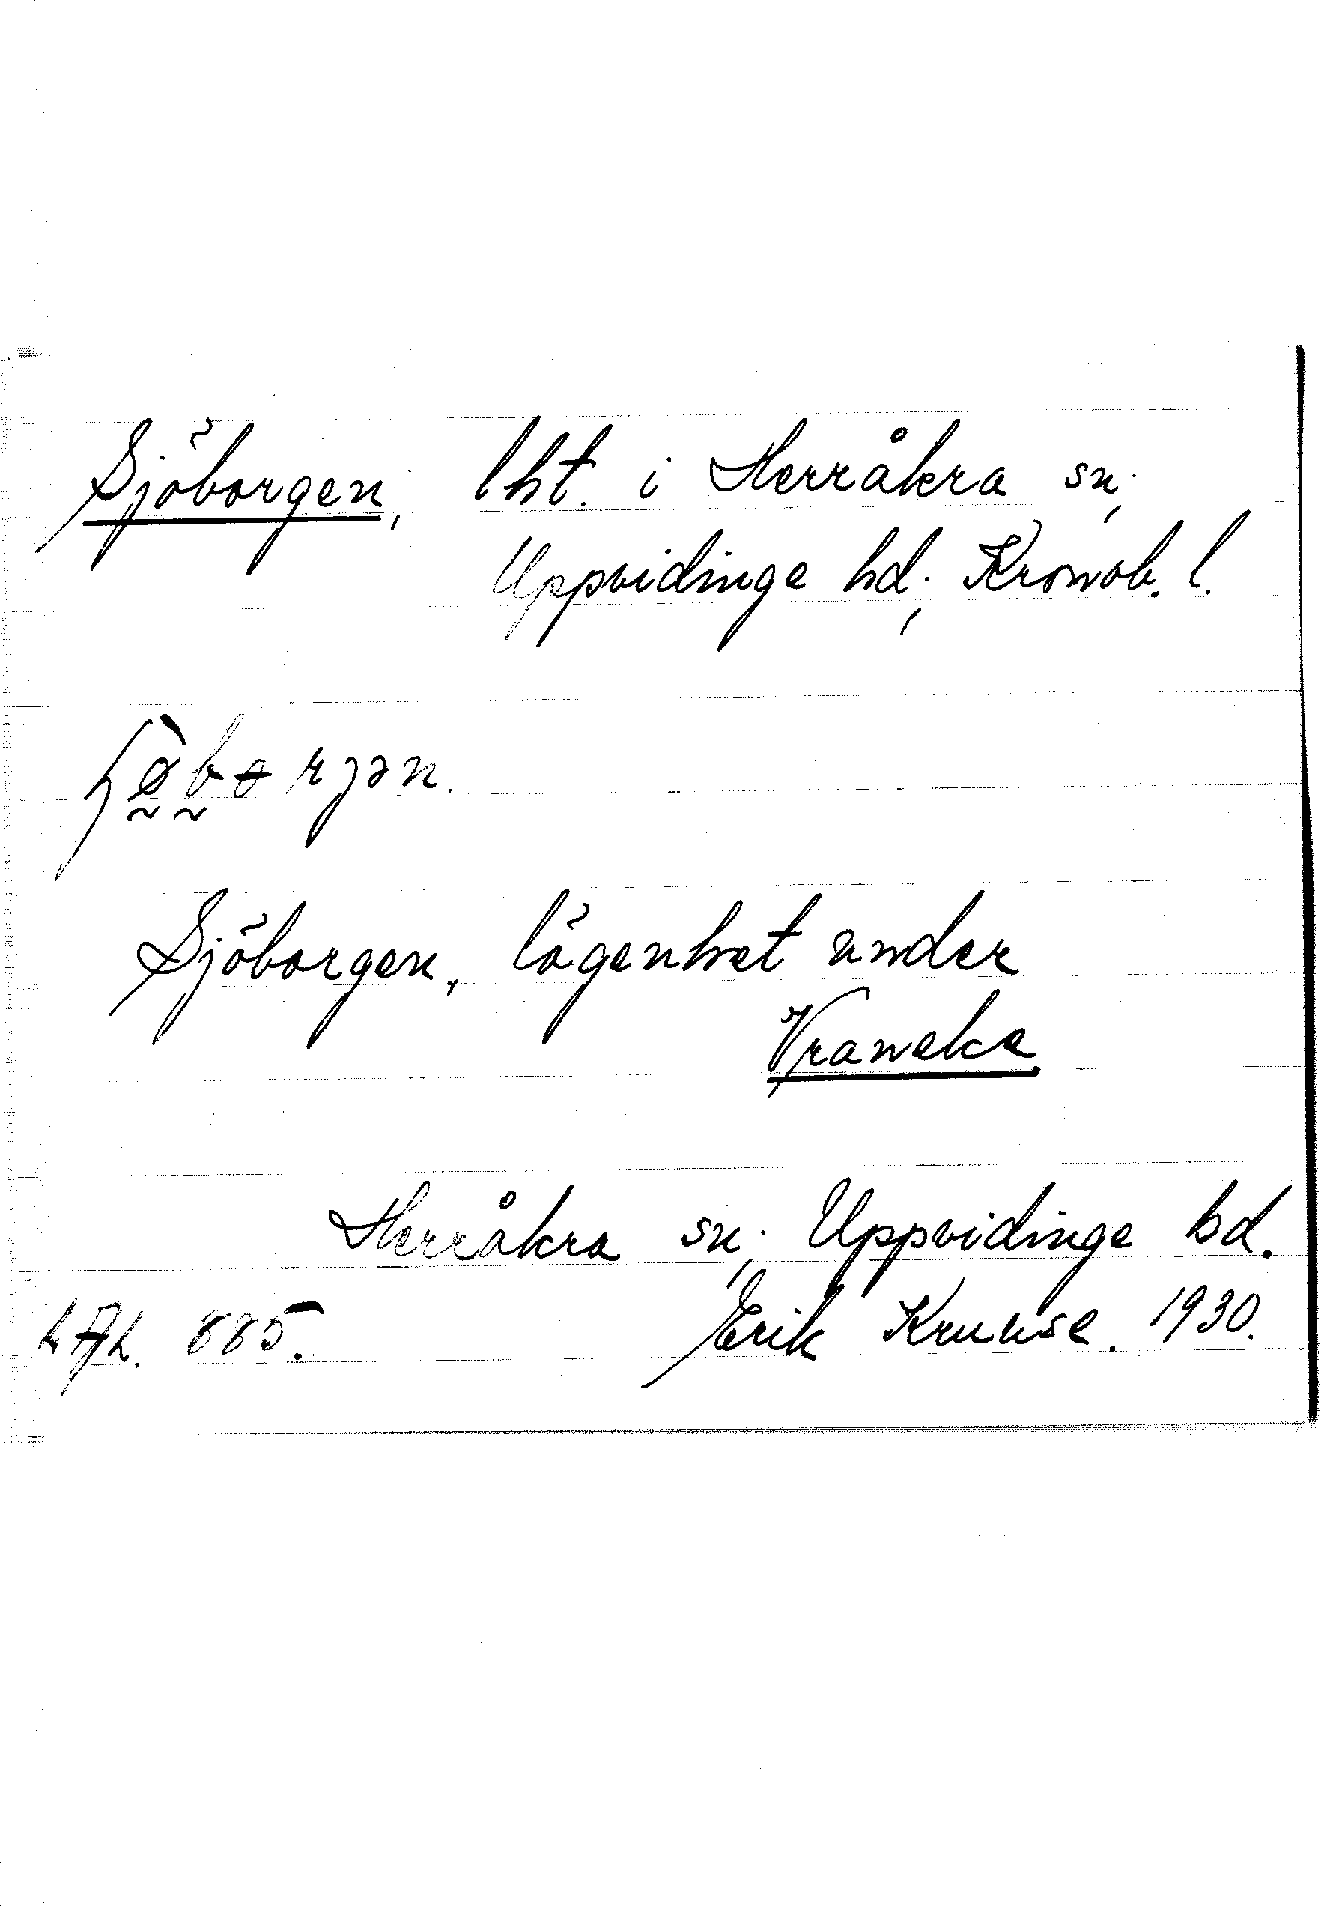 Sjöborgen, lht. i Herråkra sn;
Uppvidinge hd; Kronob. l.
Sjöborgen, lägenhet under
Vraneke
Herråkra sn; Uppvidinge hd.
885. Erik Kruuse. 1930.